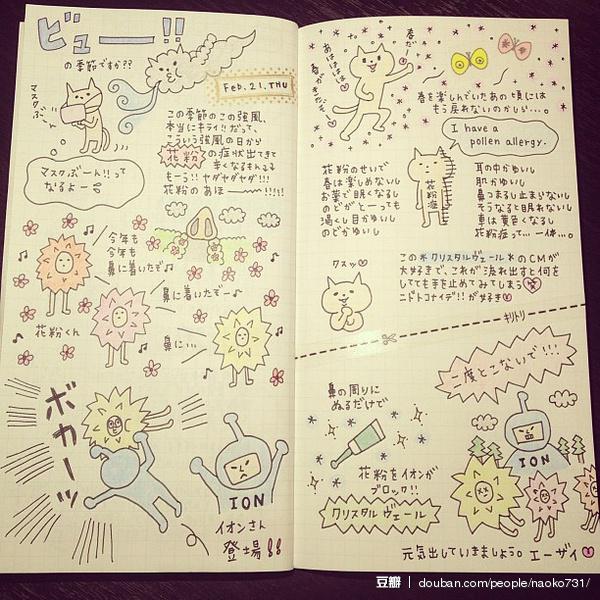 ビュー!!
の季節ですか??
Feb. 21. THU
マスクぶーん
マスクぶーん!!って
なるよー
この季節のこの強風、
本当にキライ!!だって、
こういう強風の日から
花粉の症状出てきて
辛くなるもんころ
もーう!!ヤダヤダヤダ!!!
花粉のあほー!!!!
今年も
今年も
鼻に着いたぞ♪
鼻に着いたぞー♪
鼻に…
花粉くん
ボカーッ
ION
イオンさん
登場!!
春だー
あはははは
春がきたぞー
春を楽しんでいたあの頃には
もう戻れないのかしら…。
I have a
pollen allergy.
花粉症
花粉のせいで
春は楽しめないし
お薬で眠くなるし
のどがとーっても
渇くし目かゆいし
のどかゆいし
耳の中かゆいし
肌かゆいし
鼻つまるし止まらないし
そうなると眠れないし
車は黄色くなるし
花粉症って…一体…。
クスッ
この*クリスタルヴェール*のCMが
大好きで、これが流れ出すと何を
しても手を止めてみてしまう
ニドトコナイデ!!が好き
キリトリ
二度とこないで!!!
鼻の周りに
ぬるだけで
花粉をイオンが
ブロック!!
クリスタルヴェール
ION
元気出していきましょう。エーザイ
豆瓣 | douban.com/people/naoko731/